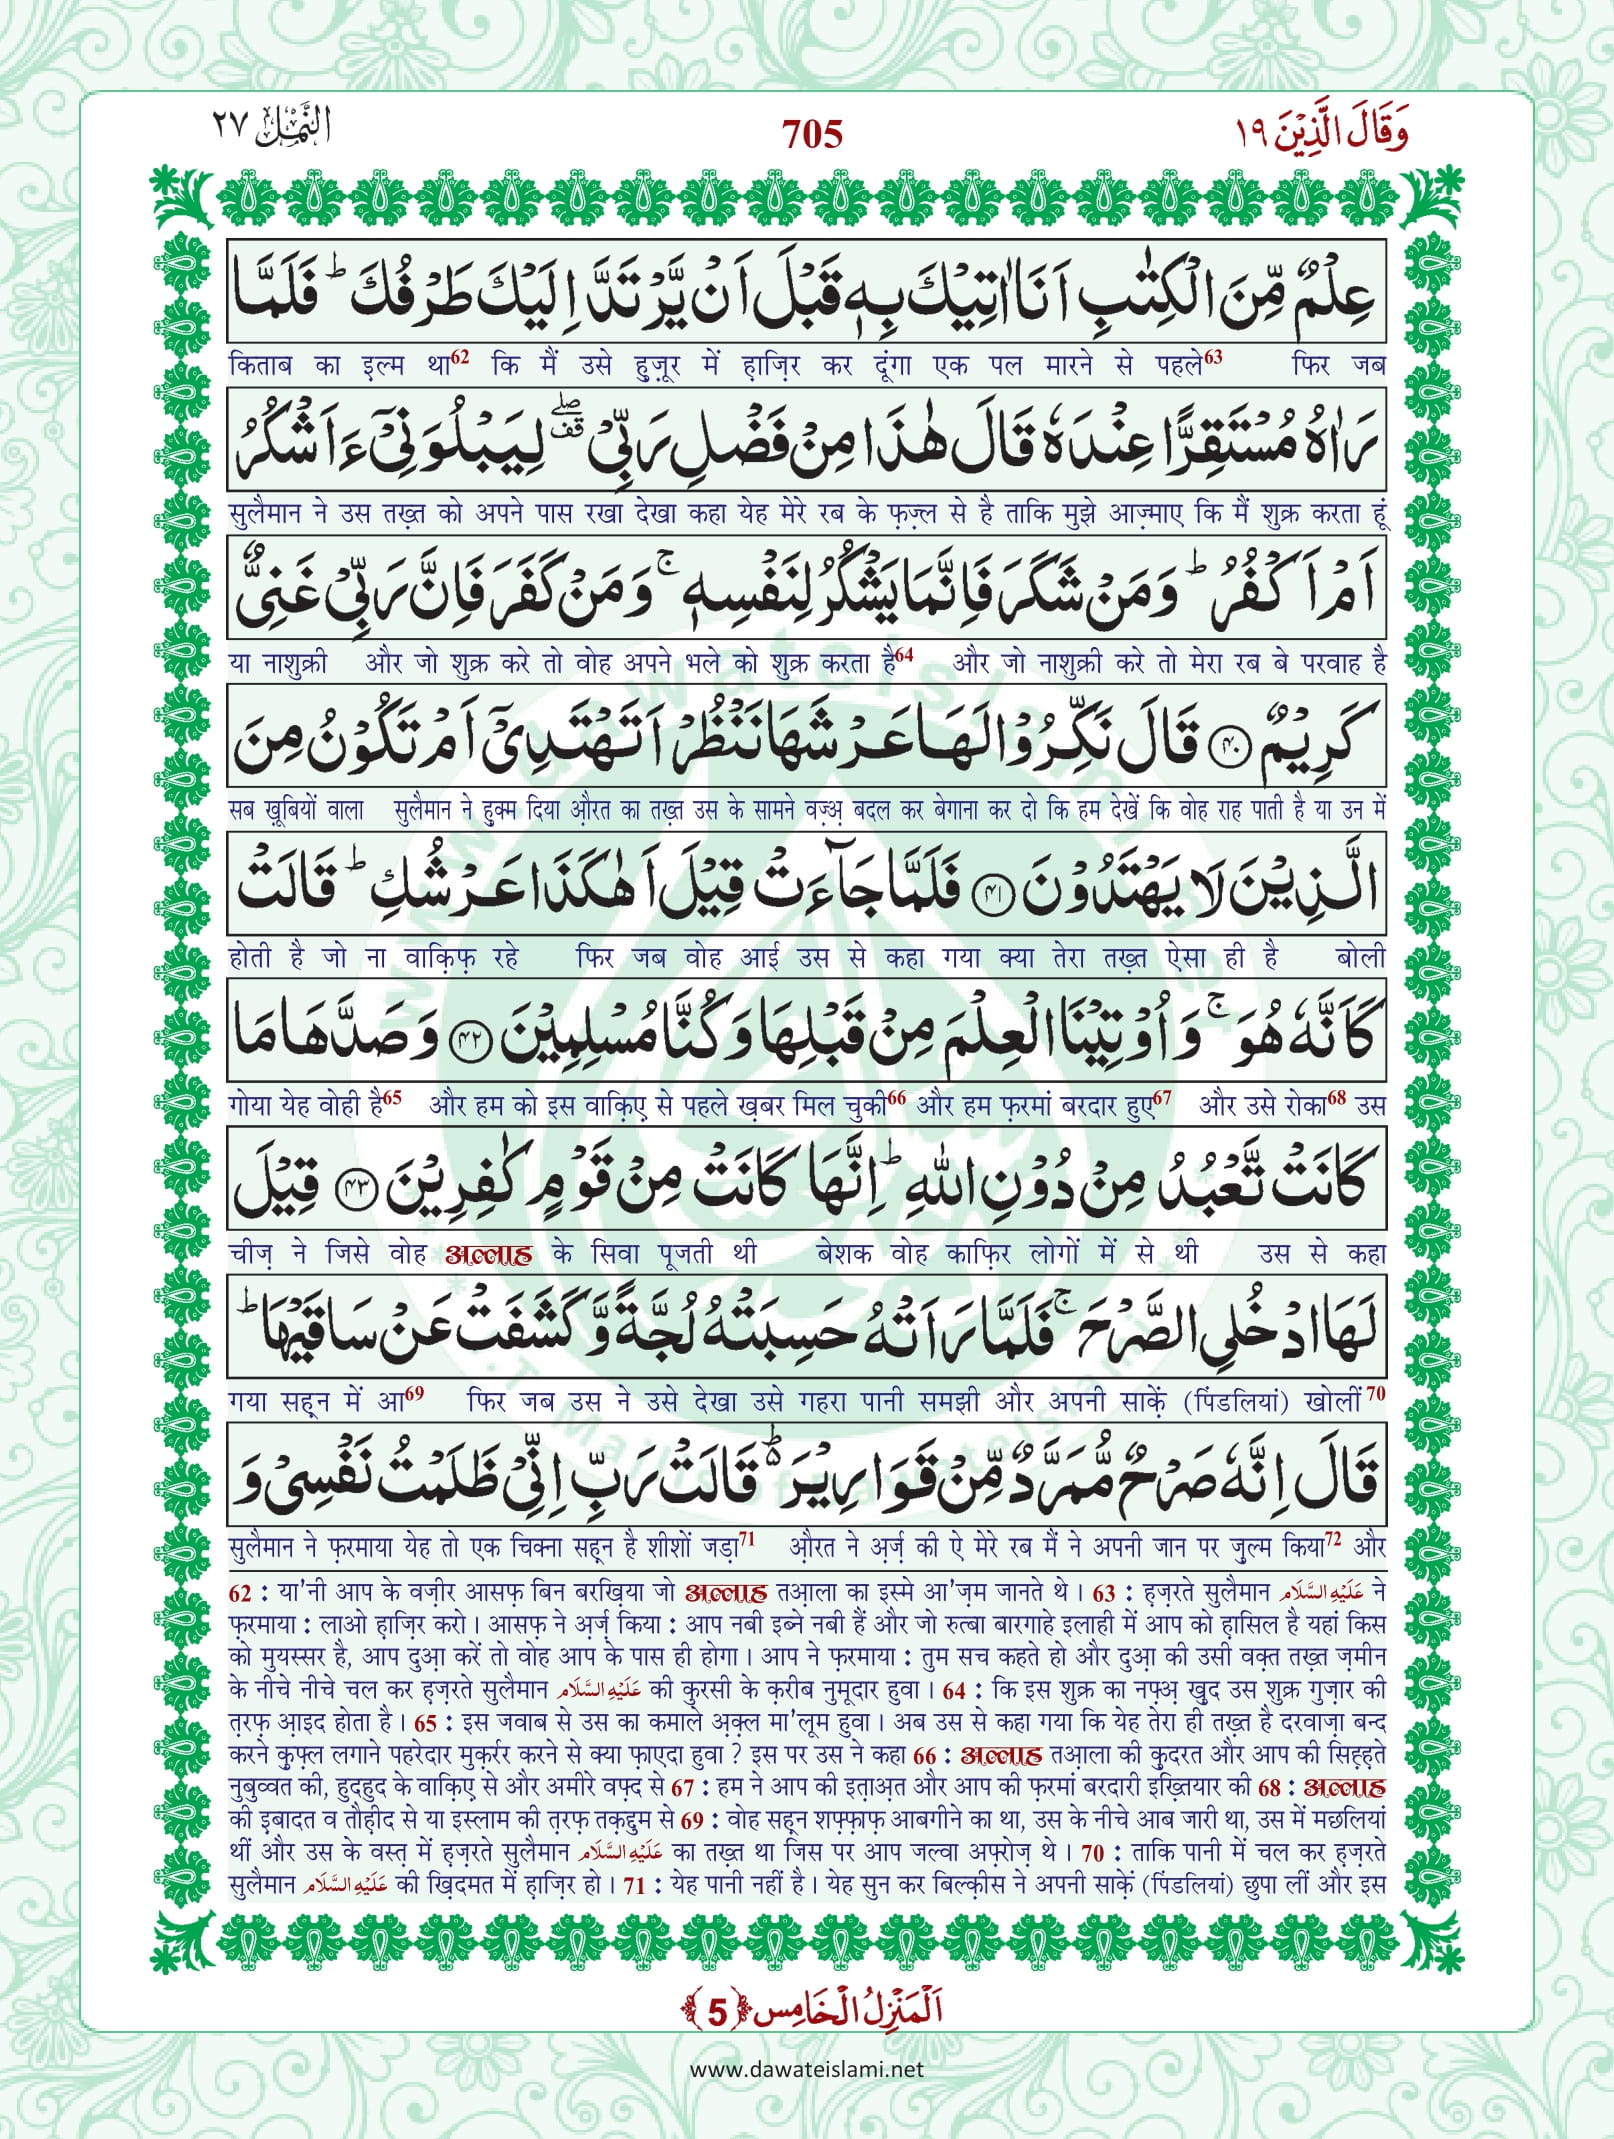 النَّمْل ٢٧ 705 وَقَالَ الَّذِیْنَ ١٩
عِلْمٌ مِّنَ الْكِتٰبِ اَنَا اٰتِیْكَ بِهٖ قَبْلَ اَنْ یَّرْتَدَّ اِلَیْكَ طَرْفُكَ ؕ فَلَمَّا
किताब का इल्म था62 कि मैं उसे हुज़ूर में हाज़िर कर दूंगा एक पल मारने से पहले63 फिर जब
رَاٰهُ مُسْتَقِرًّا عِنْدَهٗ قَالَ هٰذَا مِنْ فَضْلِ رَبِّیْ ۖۗ لِیَبْلُوَنِیْۤ ءَاَشْكُرُ
सुलैमान ने उस तख़्त को अपने पास रखा देखा कहा येह मेरे रब के फ़ज़्ल से है ताकि मुझे आज़्माए कि मैं शुक्र करता हूं
اَمْ اَكْفُرُ ؕ وَمَنْ شَكَرَ فَاِنَّمَا یَشْكُرُ لِنَفْسِهٖ ۚ وَمَنْ كَفَرَ فَاِنَّ رَبِّیْ غَنِیٌّ
या नाशुक्री और जो शुक्र करे तो वोह अपने भले को शुक्र करता है64 और जो नाशुक्री करे तो मेरा रब बे परवाह है
كَرِیْمٌ ﴿۴۰﴾ قَالَ نَكِّرُوْا لَهَا عَرْشَهَا نَنْظُرْ اَتَهْتَدِیْۤ اَمْ تَكُوْنُ مِنَ
सब ख़ूबियों वाला सुलैमान ने हुक्म दिया औ़रत का तख़्त उस के सामने वज़्अ़ बदल कर बेगाना कर दो कि हम देखें कि वोह राह पाती है या उन में
الَّذِیْنَ لَا یَهْتَدُوْنَ ﴿۴۱﴾ فَلَمَّا جَآءَتْ قِیْلَ اَهٰكَذَا عَرْشُكِ ؕ قَالَتْ
होती है जो ना वाक़िफ़ रहे फिर जब वोह आई उस से कहा गया क्या तेरा तख़्त ऐसा ही है बोली
كَاَنَّهٗ هُوَ ۚ وَاُوْتِیْنَا الْعِلْمَ مِنْ قَبْلِهَا وَكُنَّا مُسْلِمِیْنَ ﴿۴۲﴾ وَصَدَّهَا مَا
गोया येह वोही है65 और हम को इस वाक़िए़ से पहले ख़बर मिल चुकी66 और हम फ़रमां बरदार हुए67 और उसे रोका68 उस
كَانَتْ تَّعْبُدُ مِنْ دُوْنِ اللّٰهِ ؕ اِنَّهَا كَانَتْ مِنْ قَوْمٍ كٰفِرِیْنَ ﴿۴۳﴾ قِیْلَ
चीज़ ने जिसे वोह अल्लाह के सिवा पूजती थी बेशक वोह काफ़िर लोगों में से थी उस से कहा
لَهَا ادْخُلِی الصَّرْحَ ۚ فَلَمَّا رَاَتْهُ حَسِبَتْهُ لُجَّةً وَّكَشَفَتْ عَنْ سَاقَیْهَا ؕ
गया सह़्न में आ69 फिर जब उस ने उसे देखा उसे गहरा पानी समझी और अपनी साक़ें (पिंडलियां) खोलीं70
قَالَ اِنَّهٗ صَرْحٌ مُّمَرَّدٌ مِّنْ قَوَارِیْرَ ؕ۬ قَالَتْ رَبِّ اِنِّیْ ظَلَمْتُ نَفْسِیْ وَ
सुलैमान ने फ़रमाया येह तो एक चिक्ना सह़्न है शीशों जड़ा71 औ़रत ने अ़र्ज़ की ऐ मेरे रब मैं ने अपनी जान पर ज़ुल्म किया72 और
62 : या'नी आप के वज़ीर आसफ़ बिन बरख़िया जो अल्लाह तआ़ला का इस्मे आ'ज़म जानते थे । 63 : ह़ज़रते सुलैमान عَلَیْهِ السَّلَام ने
फ़रमाया : लाओ ह़ाज़िर करो । आसफ़ ने अ़र्ज़ किया : आप नबी इब्ने नबी हैं और जो रुत्बा बारगाहे इलाही में आप को ह़ासिल है यहां किस
को मुयस्सर है, आप दुआ़ करें तो वोह आप के पास ही होगा । आप ने फ़रमाया : तुम सच कहते हो और दुआ़ की उसी वक़्त तख़्त ज़मीन
के नीचे नीचे चल कर ह़ज़रते सुलैमान عَلَیْهِ السَّلَام की कुरसी के क़रीब नुमूदार हुवा । 64 : कि इस शुक्र का नफ़्अ़ ख़ुद उस शुक्र गुज़ार की
त़रफ़ आ़इद होता है । 65 : इस जवाब से उस का कमाले अ़क़्ल मा'लूम हुवा । अब उस से कहा गया कि येह तेरा ही तख़्त है दरवाज़ा बन्द
करने क़ुफ़्ल लगाने पहरेदार मुक़र्रर करने से क्या फ़ाएदा हुवा ? इस पर उस ने कहा 66 : अल्लाह तआ़ला की क़ुदरत और आप की सिह़्ह़ते
नुबुव्वत की, हुदहुद के वाक़िए़ से और अमीरे वफ़्द से 67 : हम ने आप की इत़ाअ़त और आप की फ़रमां बरदारी इख़्तियार की 68 : अल्लाह
की इ़बादत व तौह़ीद से या इस्लाम की त़रफ़ तक़द्दुम से 69 : वोह सह़्न शफ़्फ़ाफ़ आबगीने का था, उस के नीचे आब जारी था, उस में मछलियां
थीं और उस के वस्त़ में ह़ज़रते सुलैमान عَلَیْهِ السَّلَام का तख़्त था जिस पर आप जल्वा अफ़्रोज़ थे । 70 : ताकि पानी में चल कर ह़ज़रते
सुलैमान عَلَیْهِ السَّلَام की ख़िदमत में ह़ाज़िर हो । 71 : येह पानी नहीं है । येह सुन कर बिल्क़ीस ने अपनी साक़ें (पिंडलियां) छुपा लीं और इस
اَلْمَنْزِلُ الْخَامِس ﴿5﴾
www.dawateislami.net